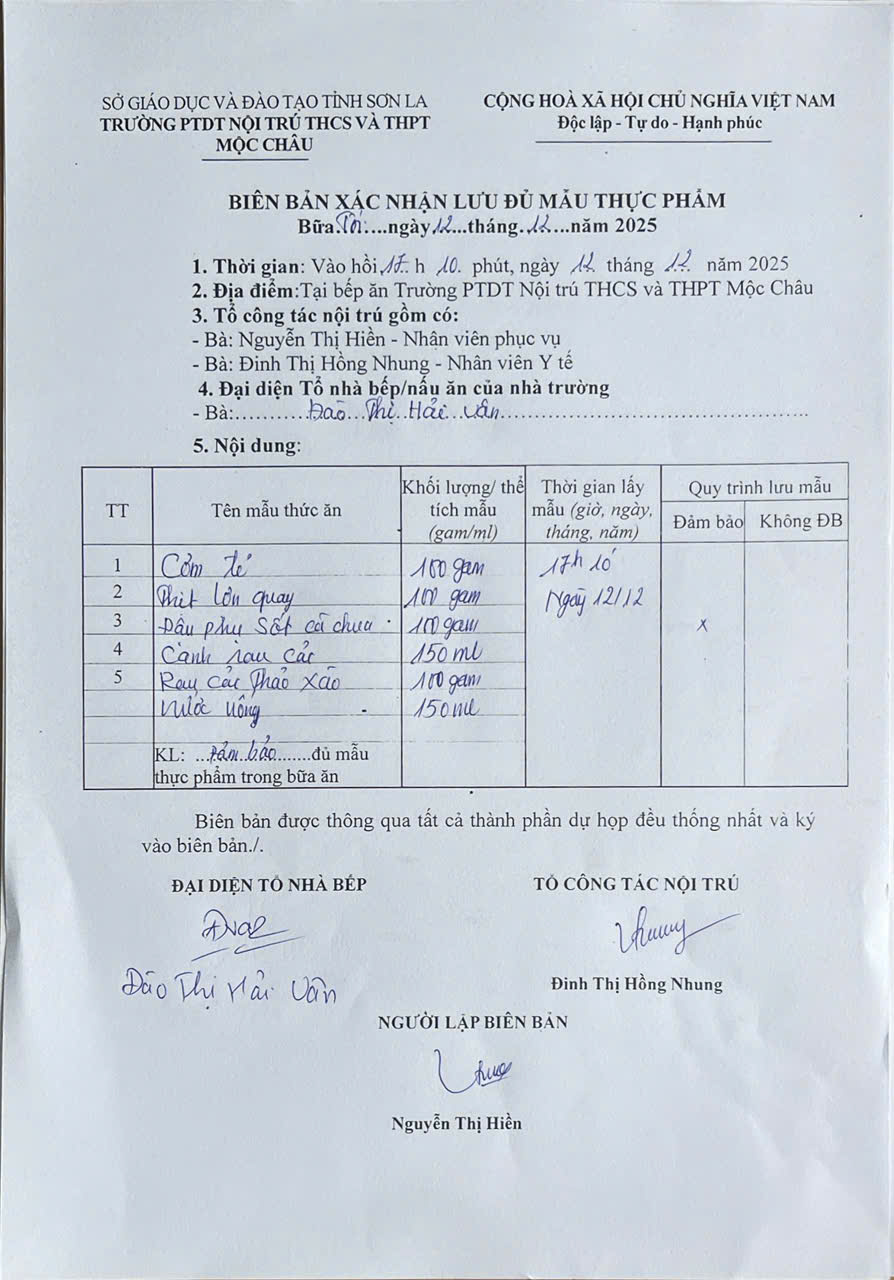 SỞ GIÁO DỤC VÀ ĐÀO TẠO TỈNH SƠN LA
TRƯỜNG PTDT NỘI TRÚ THCS VÀ THPT
MỘC CHÂU
CỘNG HOÀ XÃ HỘI CHỦ NGHĨA VIỆT NAM
Độc lập - Tự do - Hạnh phúc
BIÊN BẢN XÁC NHẬN LƯU ĐỦ MẪU THỰC PHẨM
Bữa:Tối....ngày12...tháng.12...năm 2025
1. Thời gian: Vào hồi 17. h 10. phút, ngày 12 tháng 12 năm 2025
2. Địa điểm:Tại bếp ăn Trường PTDT Nội trú THCS và THPT Mộc Châu
3. Tổ công tác nội trú gồm có:
- Bà: Nguyễn Thị Hiền - Nhân viên phục vụ
- Bà: Đinh Thị Hồng Nhung - Nhân viên Y tế
4. Đại diện Tổ nhà bếp/nấu ăn của nhà trường
- Bà:...........Đào...Thị..Hải...Vân................................................
5. Nội dung:
TT Tên mẫu thức ăn Khối lượng/ thể tích mẫu (gam/ml) Thời gian lấy mẫu (giờ, ngày, tháng, năm) Quy trình lưu mẫu
Đảm bảo Không ĐB
1 Cơm tẻ 100 gam 17h 10
2 Thịt lợn quay 100 gam Ngày 12/12
3 Đậu phụ sốt cà chua 100 gam x
4 Canh rau cải 150 ml
5 Rau cải thảo xào 100 gam
Nước uống 150 ml
KL: ...đảm bảo........đủ mẫu
thực phẩm trong bữa ăn
Biên bản được thông qua tất cả thành phần dự họp đều thống nhất và ký
vào biên bản./.
ĐẠI DIỆN TỔ NHÀ BẾP
TỔ CÔNG TÁC NỘI TRÚ
Đào Thị Hải Vân
Đinh Thị Hồng Nhung
NGƯỜI LẬP BIÊN BẢN
Nguyễn Thị Hiền